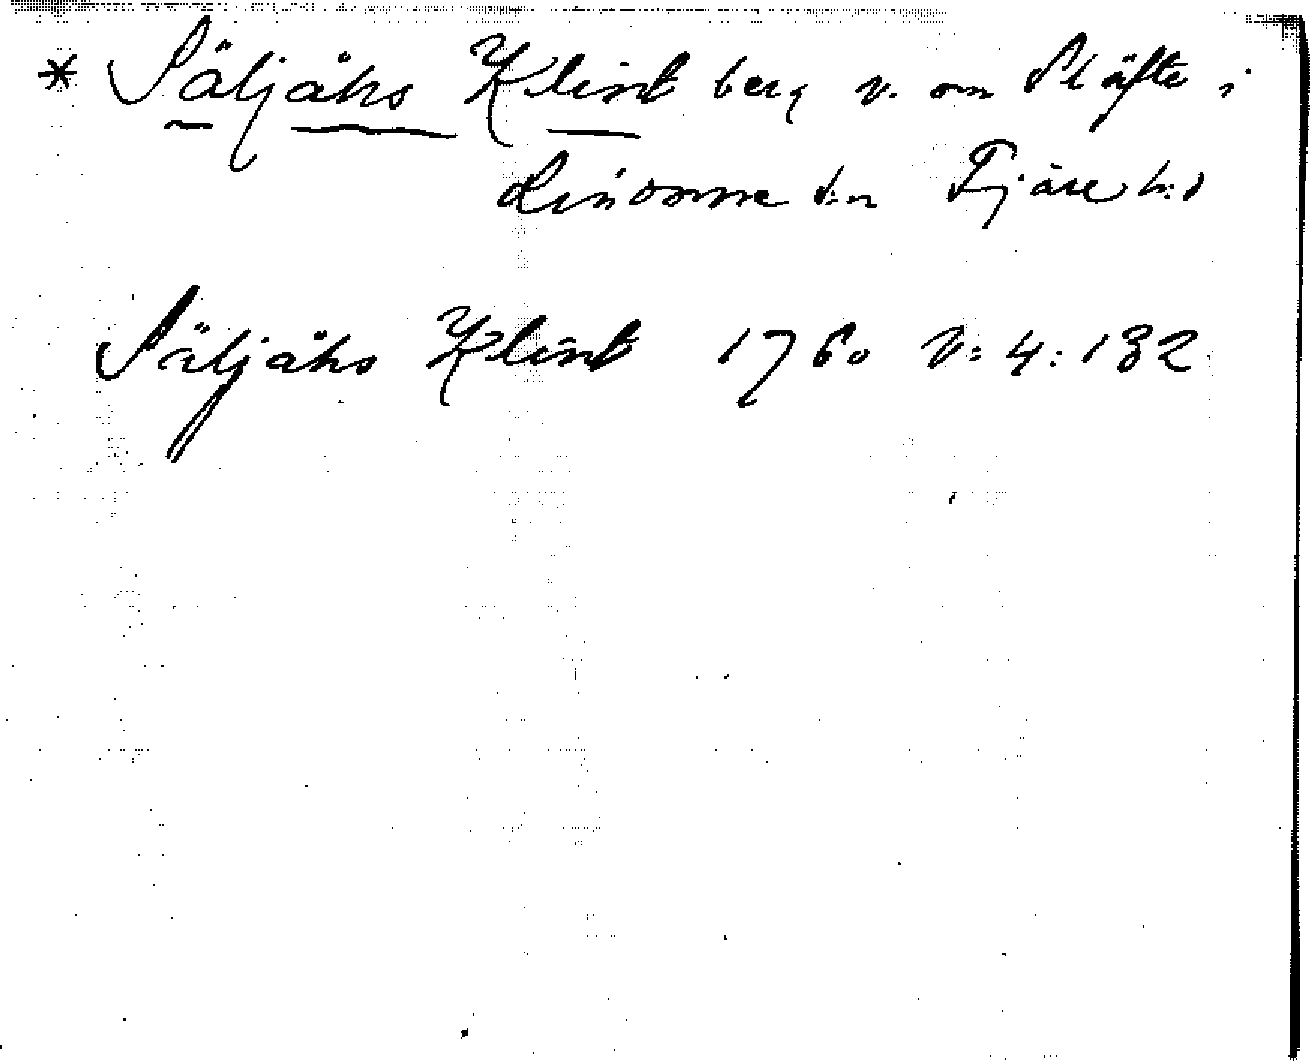 * Säljåhs Klint berg v. om Skäfte i
Lindome s:n Fjäre h:d
Säljåhs Klint 1760 V:4:132